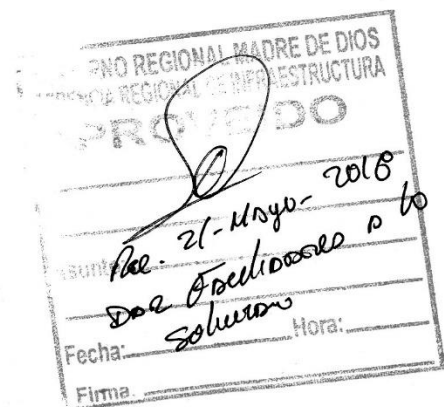 RNO REGIONAL MADRE DE DIOS
REGIONAL DE INFRAESTRUCTURA
PROVEIDO
Rec. 21-Mayo-2018
asunto
Dar Facilidades a lo
Fecha:
Hora:
Firma.